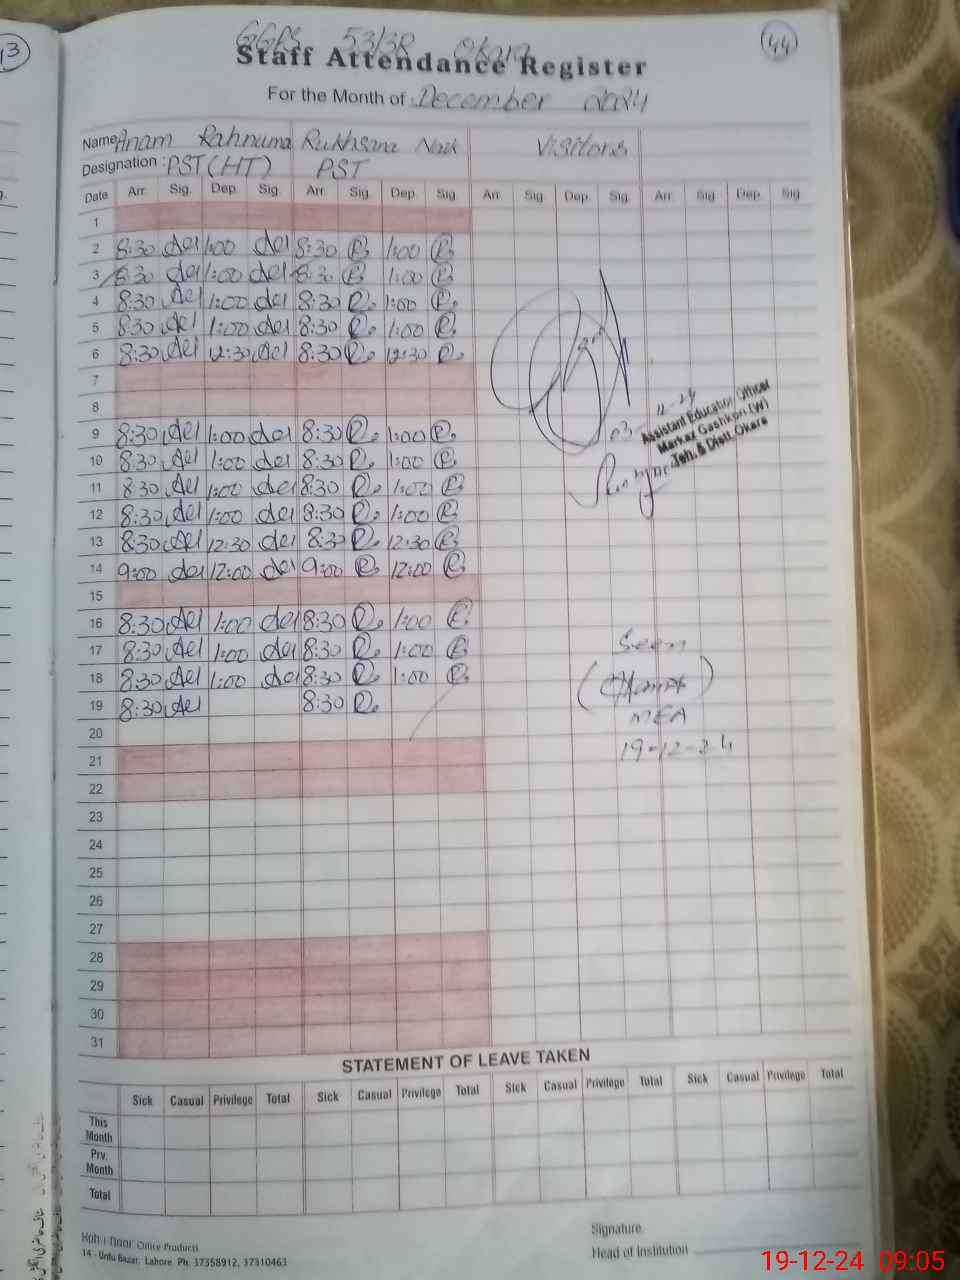 13
44
GGPS 53/3R Okara
Staff Attendance Register
For the Month of December 2024
Name Anam Rahnuma Rukhsana Visitors
Designation : PST (HT) PST
Date Arr. Sig. Dep. Sig. Arr. Sig. Dep. Sig. Arr. Sig. Dep. Sig. Arr. Sig. Dep. Sig.
1
2 8:30 1:00 8:30 R 1:00 R
3 8:30 1:00 8:30 R 1:00 R
4 8:30 1:00 8:30 R. 1:00 R.
5 8:30 1:00 8:30 R. 1:00 R.
6 8:30 12:30 8:30 R. 12:30 R.
7
8
9 8:30 1:00 8:30 R. 1:00 R.
10 8:30 1:00 8:30 R. 1:00 R.
11 8:30 1:00 8:30 R. 1:00 R.
12 8:30 1:00 8:30 R. 1:00 R.
13 8:30 12:30 8:30 R. 12:30 R.
14 9:00 12:00 9:00 R. 12:00 R.
15
16 8:30 1:00 8:30 R. 1:00 R.
17 8:30 1:00 8:30 R. 1:00 R.
18 8:30 1:00 8:30 R. 1:00 R.
19 8:30 8:30 R.
20
21
22
23
24
25
26
27
28
29
30
31
03-12-24
Assistant Education Officer
Markaz Gashkori (W)
Teh. & Distt. Okara
Seen
MEA
19-12-24
STATEMENT OF LEAVE TAKEN
Sick Casual Privilege Total Sick Casual Privilege Total Sick Casual Privilege Total Sick Casual Privilege Total
This Month
Prv. Month
Total
Koh-i-Noor Office Products
14 - Urdu Bazar, Lahore Ph: 37358912, 37310463
Signature
Head of Institution
19-12-24 09:05